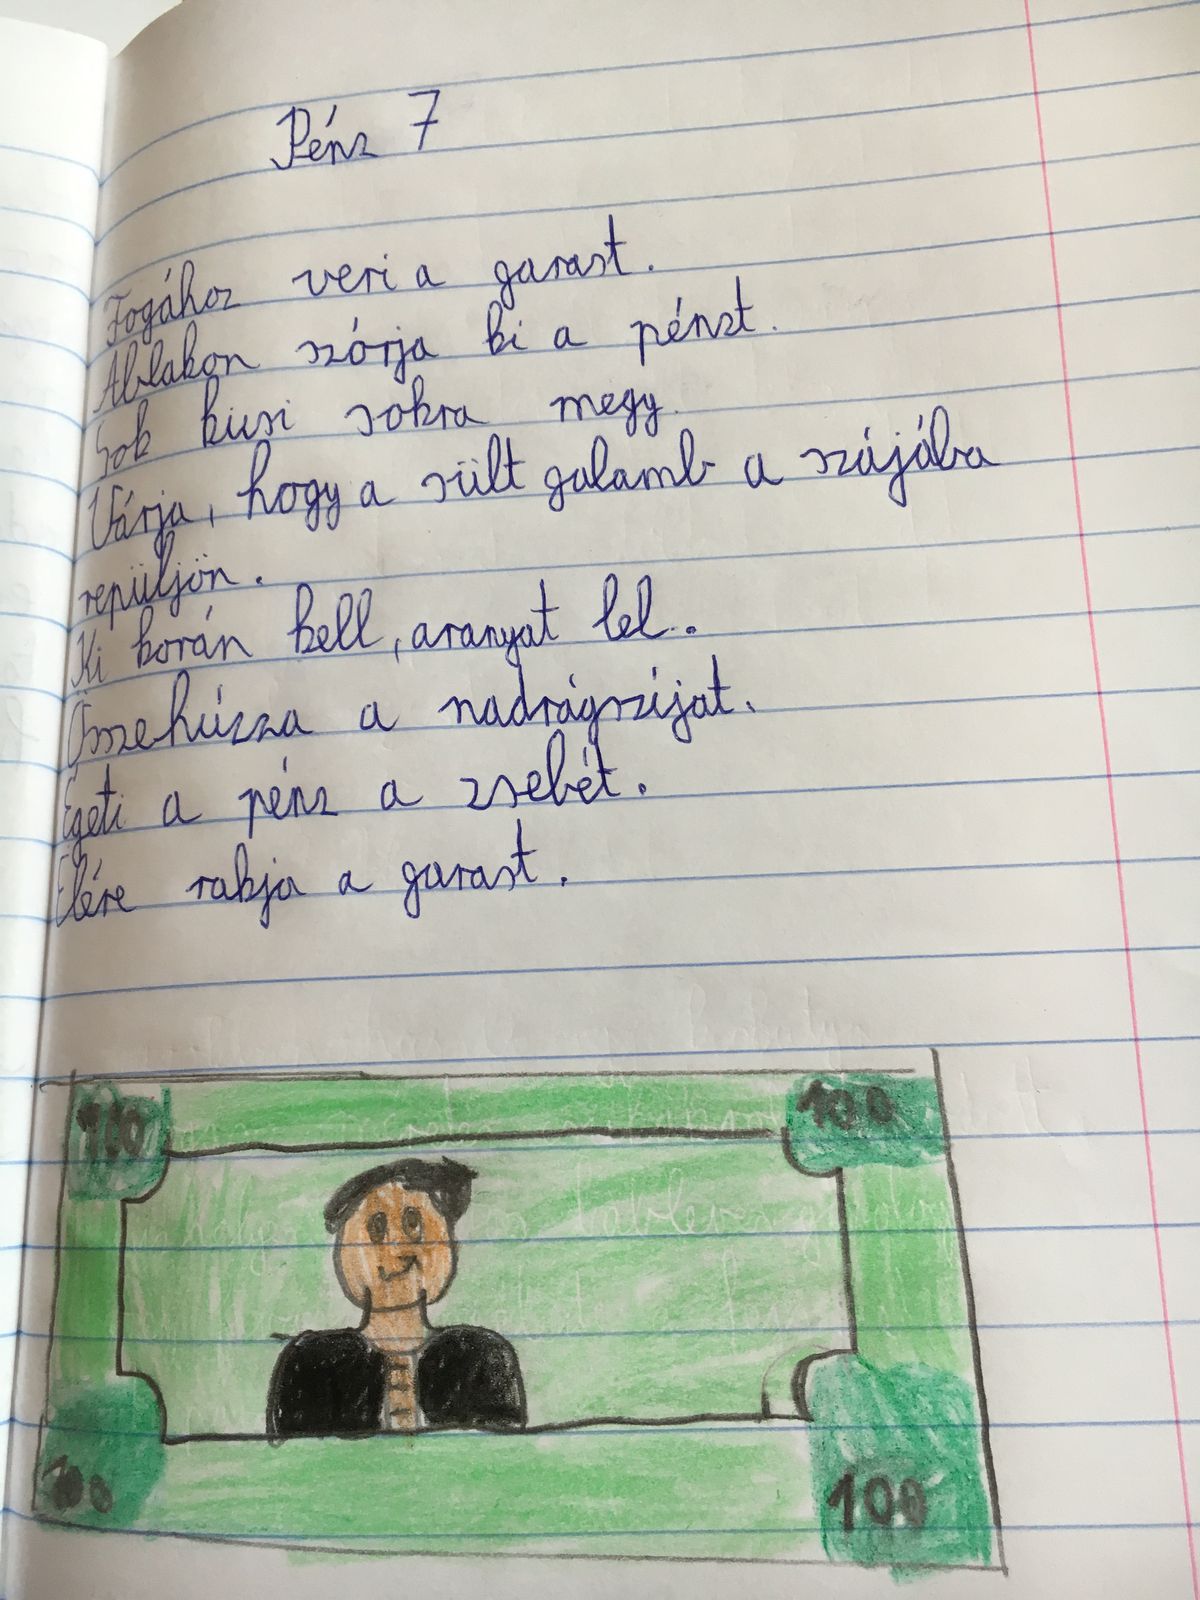 Pénz 7
Fogához veri a garast.
Ablakon szórja ki a pénzt.
Sok kicsi sokra megy.
Várja, hogy a sült galamb a szájába
repüljön.
Ki korán kell, aranyat lel.
Összehúzza a nadrágszíjat.
Égeti a pénz a zsebét.
Élére rakja a garast.
100 100
100 100